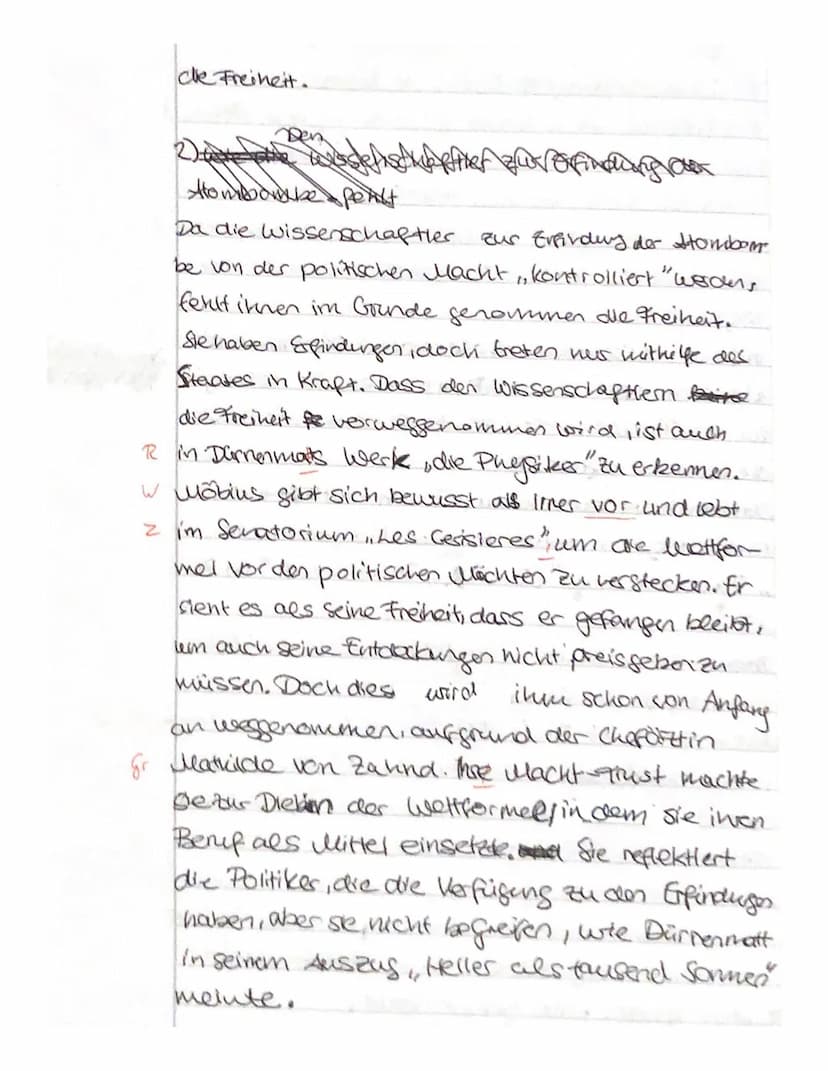 die Freiheit.
Den
2) Wissenschaftler zur Erfindung der
Atombombe fehlt
Da die Wissenschaftler zur Erfindung der Atombom-
be von der politischen Macht „kontrolliert“ werden,
fehlt ihnen im Grunde genommen die Freiheit.
Sie haben Erfindungen, doch treten nur mithilfe des
Staates in Kraft. Dass den Wissenschaftlern keine
die Freiheit vorweggenommen wird, ist auch
R in Dürrenmats Werk „die Physiker“ zu erkennen.
W Möbius gibt sich bewusst als Irrer vor und lebt
Z im Senatorium „Les Cerisieres“, um die Weltfor-
mel vor den politischen Mächten zu verstecken. Er
sieht es als seine Freiheit, dass er gefangen bleibt,
um auch seine Entdeckungen nicht preisgeben zu
müssen. Doch dies wird ihm schon von Anfang
an weggenommen, aufgrund der Chefärztin
Gr Mathilde von Zahnd. Ihre Macht-Trust machte
sie zur Diebin der Weltformel, in dem sie ihren
Beruf als Mittel einsetzte. und Sie reflektiert
die Politiker, die die Verfügung zu den Erfindungen
haben, aber sie nicht begreifen, wie Dürrenmatt
in seinem Auszug „Heller als tausend Sonnen“
meinte.